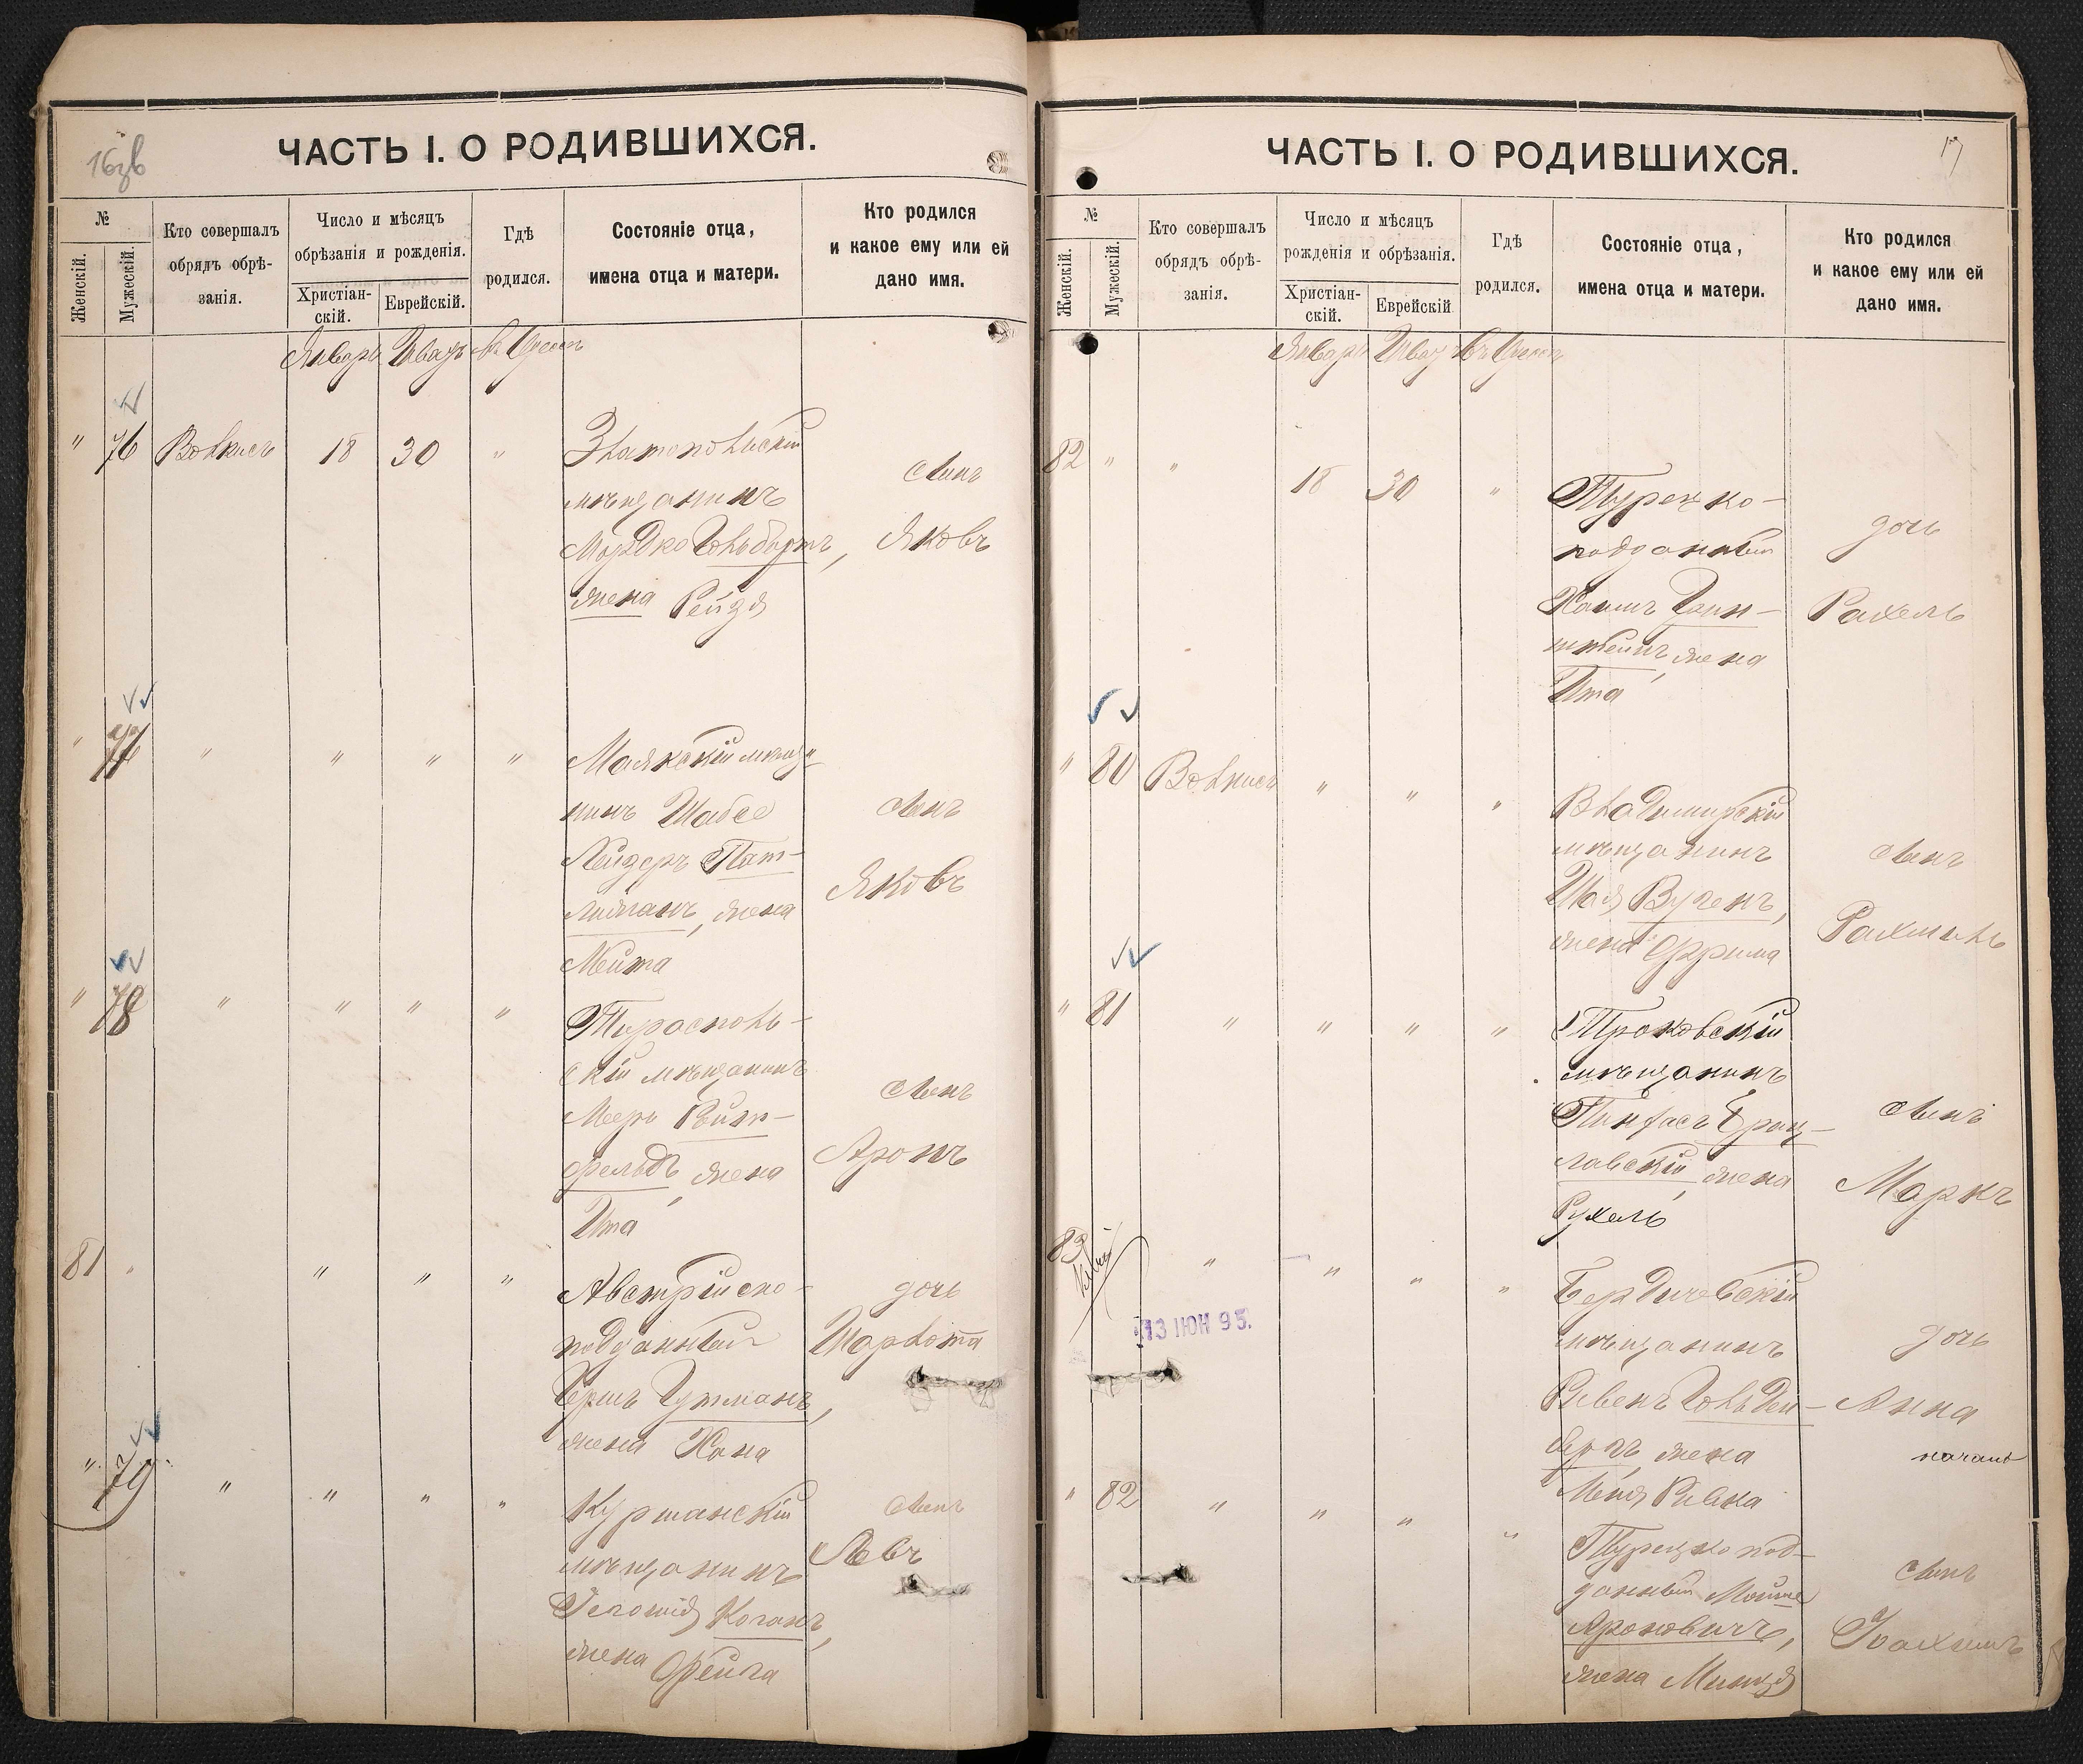 16зв
ЧАСТЬ I. О РОДИВШИХСЯ.
№
Женскій.
Мужескій.
Кто совершалъ
обрядъ обрѣ-
занія.
Число и мѣсяцъ
обрѣзанія и рожденія.
Христіан-
скій.
Еврейскій.
Гдѣ
родился.
Состояніе отца,
имена отца и матери.
Кто родился
и какое ему или ей
дано имя.
Январь
" 76 18 30 " Златопольскій
мѣщанинъ
Мордко Гольдбортъ,
жена Рейзя
сынъ
Яковъ
" 77 " " " " Маякскій мѣща-
нинъ Шабсе
Лейзеръ
жена
Мейта
сынъ
Яковъ
" 78 " " " " Тирасполь-
скій мѣщанинъ
Мееръ
фельдъ, жена
Ита
сынъ
Аронъ
81 " " " " Австрійско-
подданный
Гершъ Гутманъ,
жена Хана
дочь
Шарлота
" 79 " " " "
мѣщанинъ
Коганъ,
жена Фейга
сынъ
Левъ
17
ЧАСТЬ I. О РОДИВШИХСЯ.
№
Женскій.
Мужескій.
Кто совершалъ
обрядъ обрѣ-
занія.
Число и мѣсяцъ
рожденія и обрѣзанія.
Христіан-
скій.
Еврейскій
Гдѣ
родился.
Состояніе отца,
имена отца и матери.
Кто родился
и какое ему или ей
дано имя.
Январь
82 " " 18 30 " Турецко-
подданный
Хаимъ Грин-
штейнъ, жена
Ита
дочь
Рахель
" 80 " " " Владимирскій
мѣщанинъ
Шая
жена Фрима
сынъ
Рахмиль
" 81 " " " " Троковскій
мѣщанинъ
Пинхасъ Брац-
лавскій, жена
Рухель
сынъ
Маркъ
83 " " " "
13 ІЮН 95.
Бердичевскій
мѣщанинъ
Рувенъ Гольден-
бергъ, жена
Меня Ривка
дочь
Анна
" 82 " " " " Турецко под-
данный Мойше
Ароновичъ,
жена Миндя
сынъ
Іоахимъ